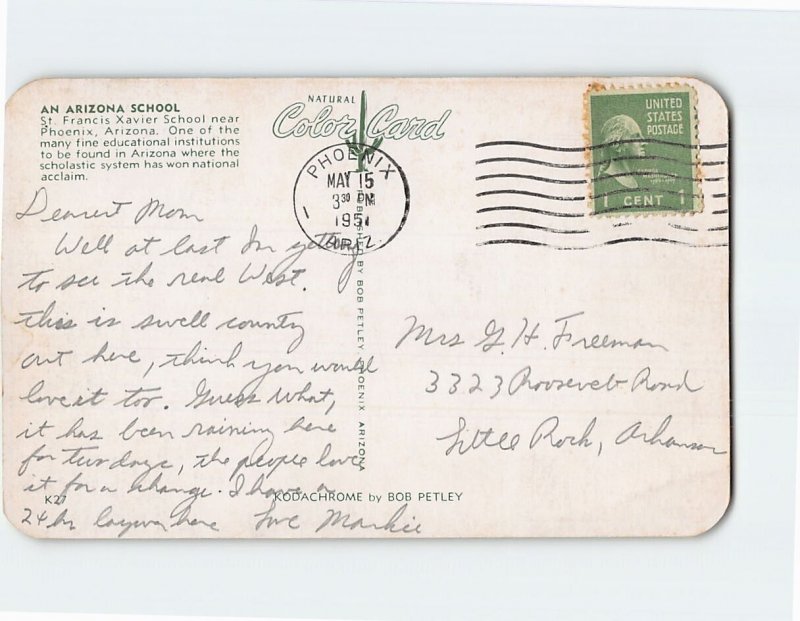 AN ARIZONA SCHOOL
St. Francis Xavier School near
Phoenix, Arizona. One of the
many fine educational institutions
to be found in Arizona where the
scholastic system has won national
acclaim.
NATURAL
Color Card
PHOENIX
MAY 15
3 30 PM
1951
ARIZ.
1
UNITED
STATES
POSTAGE
1 CENT 1
Dearest Mom
Well at last Im getting
to see the real West.
this is swell country
out here, think you would
love it too. Guess What,
it has been raining here
for two days, the people love
it for a change. I have a
24 hr layover here Love Markie
Mrs G. H. Freeman
3323 Roosevelt Road
Little Rock, Arkansas
PUBLISHED BY BOB PETLEY PHOENIX ARIZONA
K27
KODACHROME by BOB PETLEY